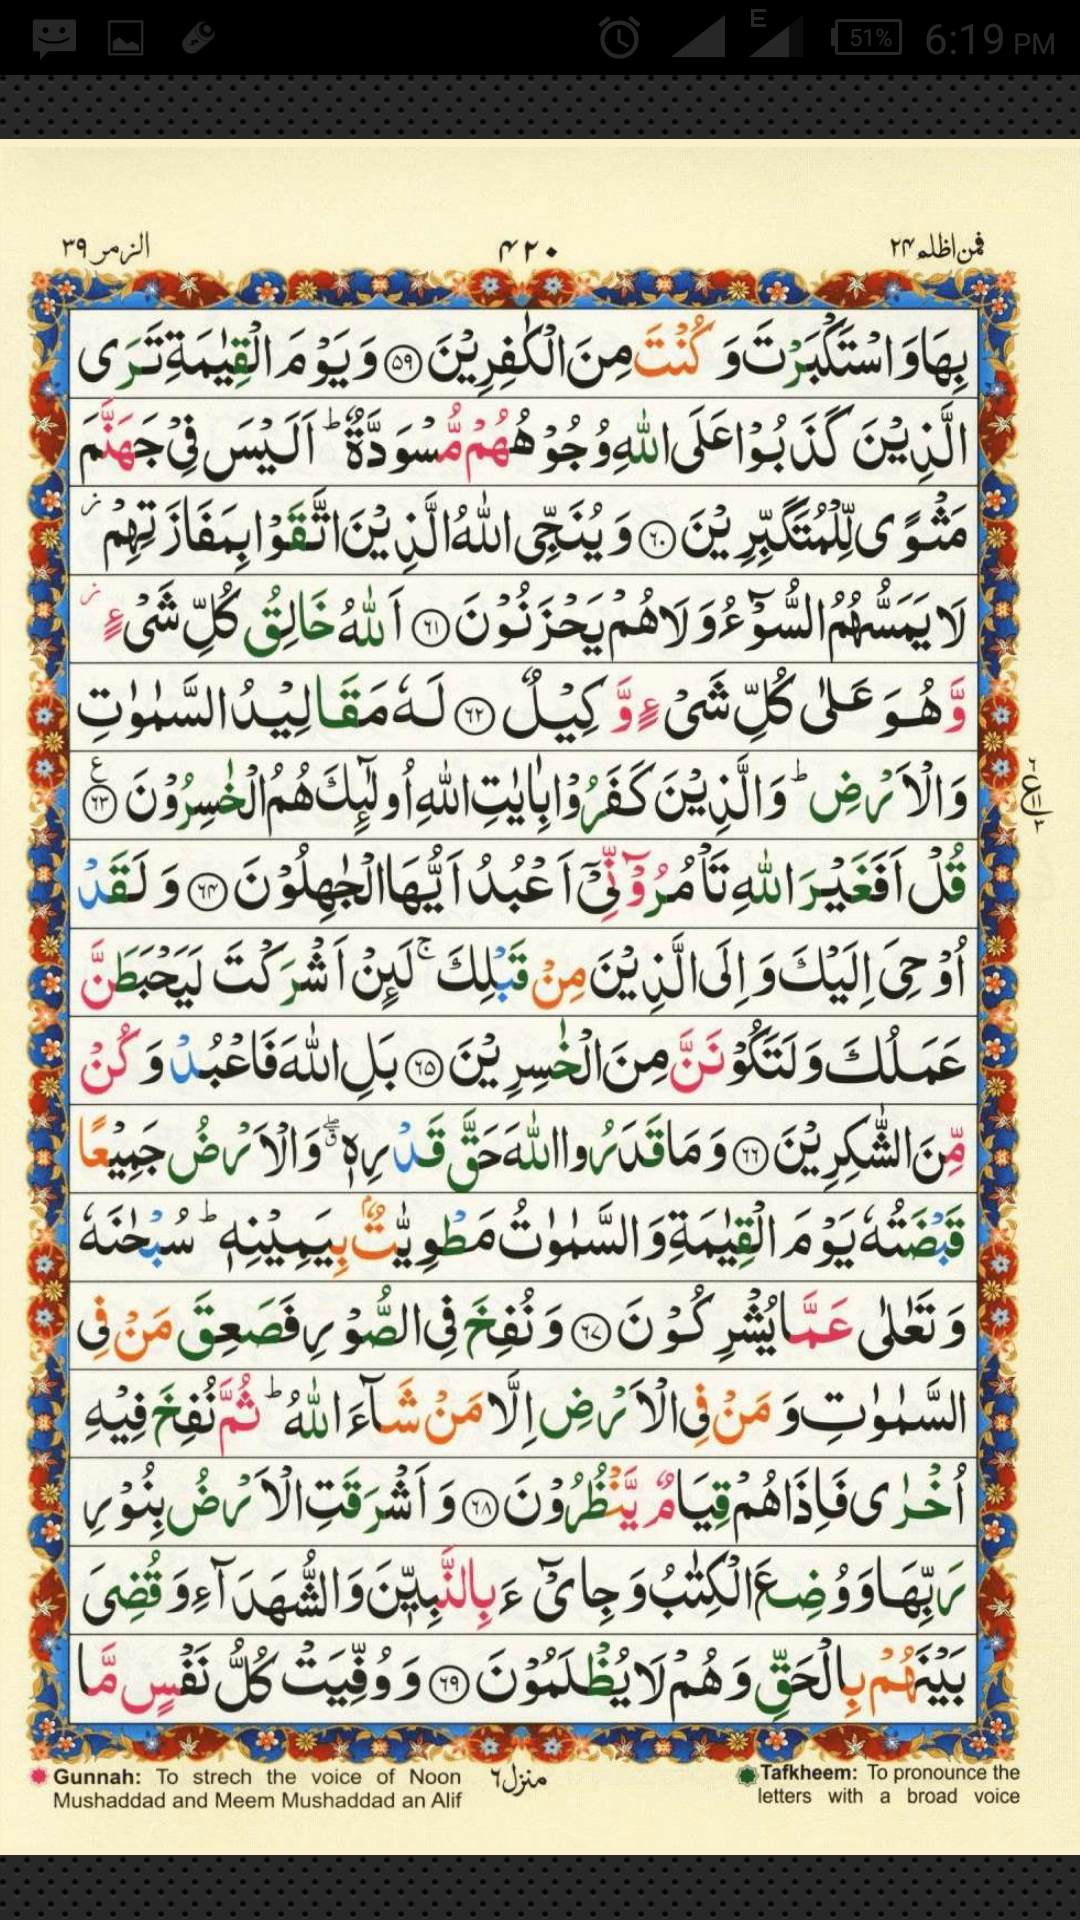 51% 6:19 PM
E
فمن اظلم ۲۴ ۴۲۰ الزمر ۳۹
بِهَا وَاسْتَكْبَرْتَ وَ كُنْتَ مِنَ الْكٰفِرِیْنَ ﴿۵۹﴾ وَ یَوْمَ الْقِیٰمَةِ تَرَی
الَّذِیْنَ كَذَبُوْا عَلَی اللّٰهِ وُجُوْهُهُمْ مُّسْوَدَّةٌ ؕ اَلَیْسَ فِیْ جَهَنَّمَ
مَثْوًی لِّلْمُتَكَبِّرِیْنَ ﴿۶۰﴾ وَ یُنَجِّی اللّٰهُ الَّذِیْنَ اتَّقَوْا بِمَفَازَتِهِمْ ز
لَا یَمَسُّهُمُ السُّوْٓءُ وَ لَا هُمْ یَحْزَنُوْنَ ﴿۶۱﴾ اَللّٰهُ خَالِقُ كُلِّ شَیْءٍ ز
وَّ هُوَ عَلٰی كُلِّ شَیْءٍ وَّكِیْلٌ ﴿۶۲﴾ لَهٗ مَقَالِیْدُ السَّمٰوٰتِ
وَ الْاَرْضِ ؕ وَ الَّذِیْنَ كَفَرُوْا بِاٰیٰتِ اللّٰهِ اُولٰٓئِكَ هُمُ الْخٰسِرُوْنَ ﴿۶۳﴾ ع
قُلْ اَفَغَیْرَ اللّٰهِ تَاْمُرُوْٓنِّیْٓ اَعْبُدُ اَیُّهَا الْجٰهِلُوْنَ ﴿۶۴﴾ وَ لَقَدْ
اُوْحِیَ اِلَیْكَ وَ اِلَی الَّذِیْنَ مِنْ قَبْلِكَ ۚ لَئِنْ اَشْرَكْتَ لَیَحْبَطَنَّ
عَمَلُكَ وَ لَتَكُوْنَنَّ مِنَ الْخٰسِرِیْنَ ﴿۶۵﴾ بَلِ اللّٰهَ فَاعْبُدْ وَ كُنْ
مِّنَ الشّٰكِرِیْنَ ﴿۶۶﴾ وَ مَا قَدَرُوا اللّٰهَ حَقَّ قَدْرِهٖ ۖق وَ الْاَرْضُ جَمِیْعًا
قَبْضَتُهٗ یَوْمَ الْقِیٰمَةِ وَ السَّمٰوٰتُ مَطْوِیّٰتٌۢ بِیَمِیْنِهٖ ؕ سُبْحٰنَهٗ
وَ تَعٰلٰی عَمَّا یُشْرِكُوْنَ ﴿۶۷﴾ وَ نُفِخَ فِی الصُّوْرِ فَصَعِقَ مَنْ فِی
السَّمٰوٰتِ وَ مَنْ فِی الْاَرْضِ اِلَّا مَنْ شَآءَ اللّٰهُ ؕ ثُمَّ نُفِخَ فِیْهِ
اُخْرٰی فَاِذَا هُمْ قِیَامٌ یَّنْظُرُوْنَ ﴿۶۸﴾ وَ اَشْرَقَتِ الْاَرْضُ بِنُوْرِ
رَبِّهَا وَ وُضِعَ الْكِتٰبُ وَ جِایْٓءَ بِالنَّبِیّٖنَ وَ الشُّهَدَآءِ وَ قُضِیَ
بَیْنَهُمْ بِالْحَقِّ وَ هُمْ لَا یُظْلَمُوْنَ ﴿۶۹﴾ وَ وُفِّیَتْ كُلُّ نَفْسٍ مَّا
ع
منزل ۶
Gunnah: To strech the voice of Noon
Mushaddad and Meem Mushaddad an Alif
Tafkheem: To pronounce the
letters with a broad voice